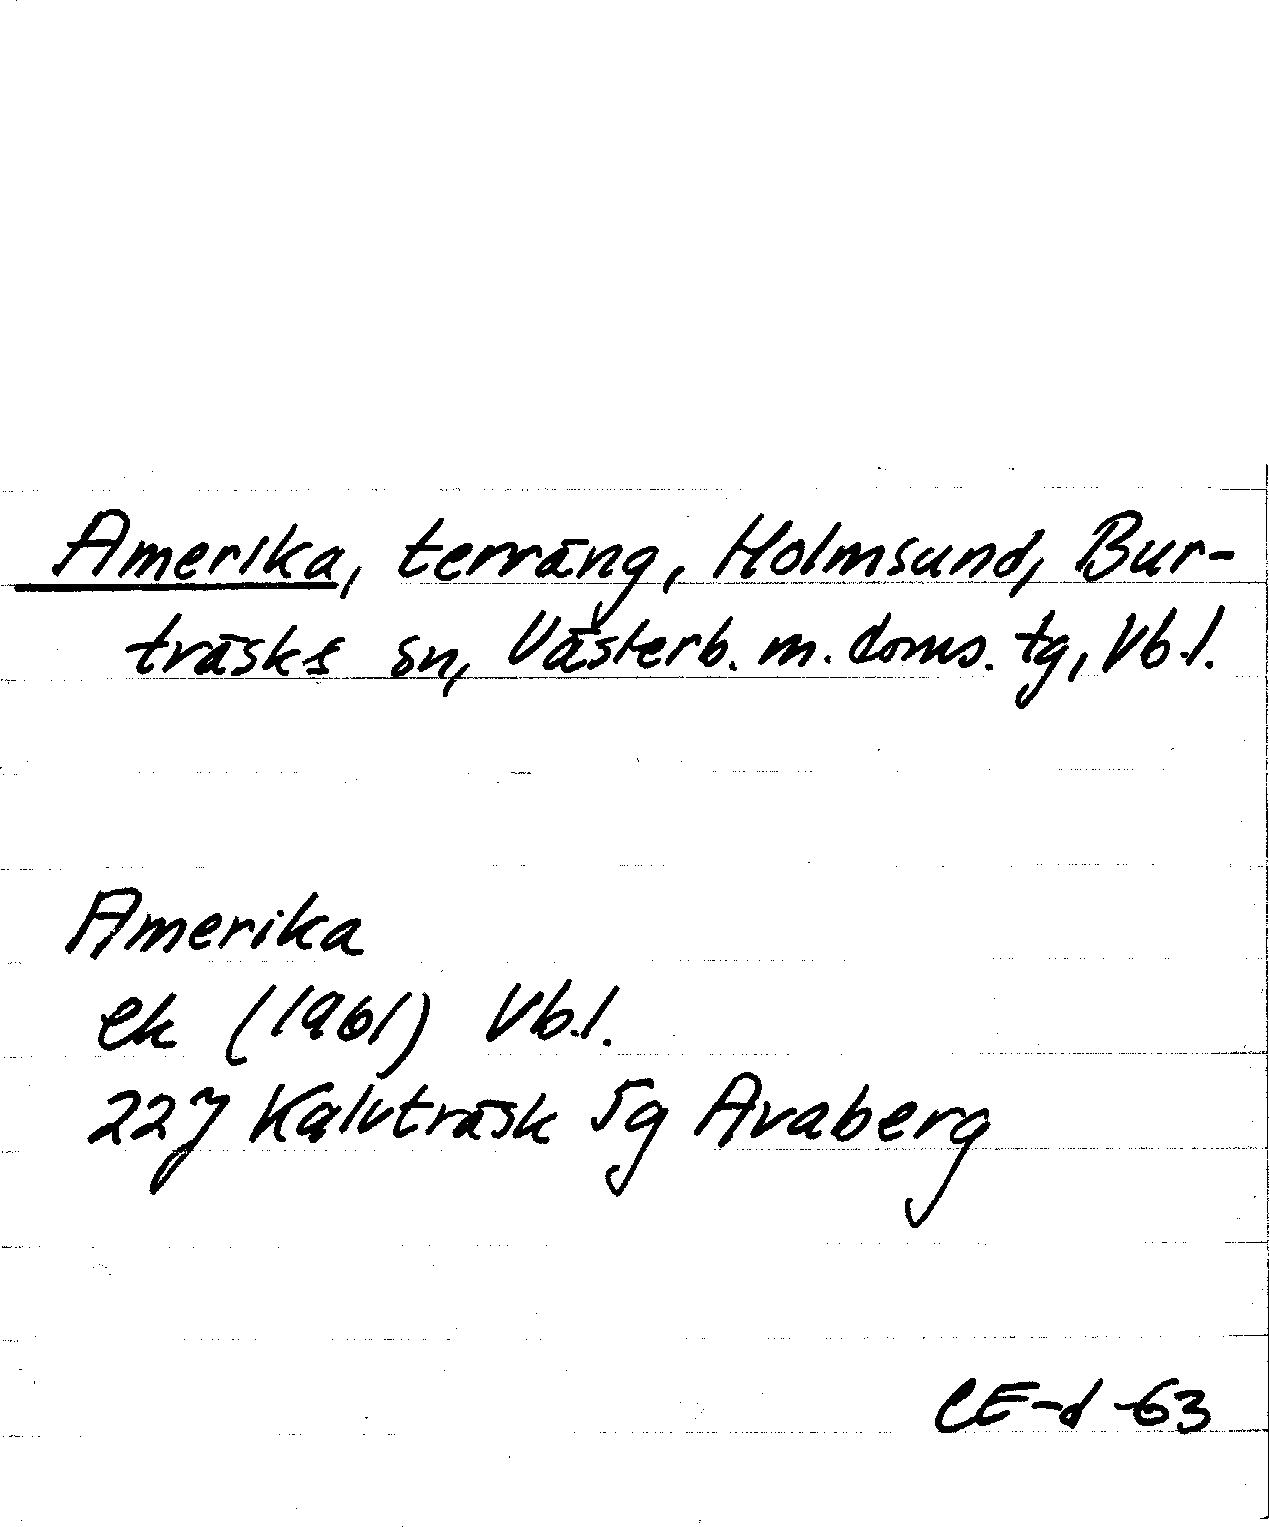 Amerika, terräng, Holmsund, Bur-
träsks sn, Västerb. m. doms. tg, Vb.l.
Amerika
ek (1961) Vb.l.
22J Kalvträsk 5g Avaberg
CE-d -63